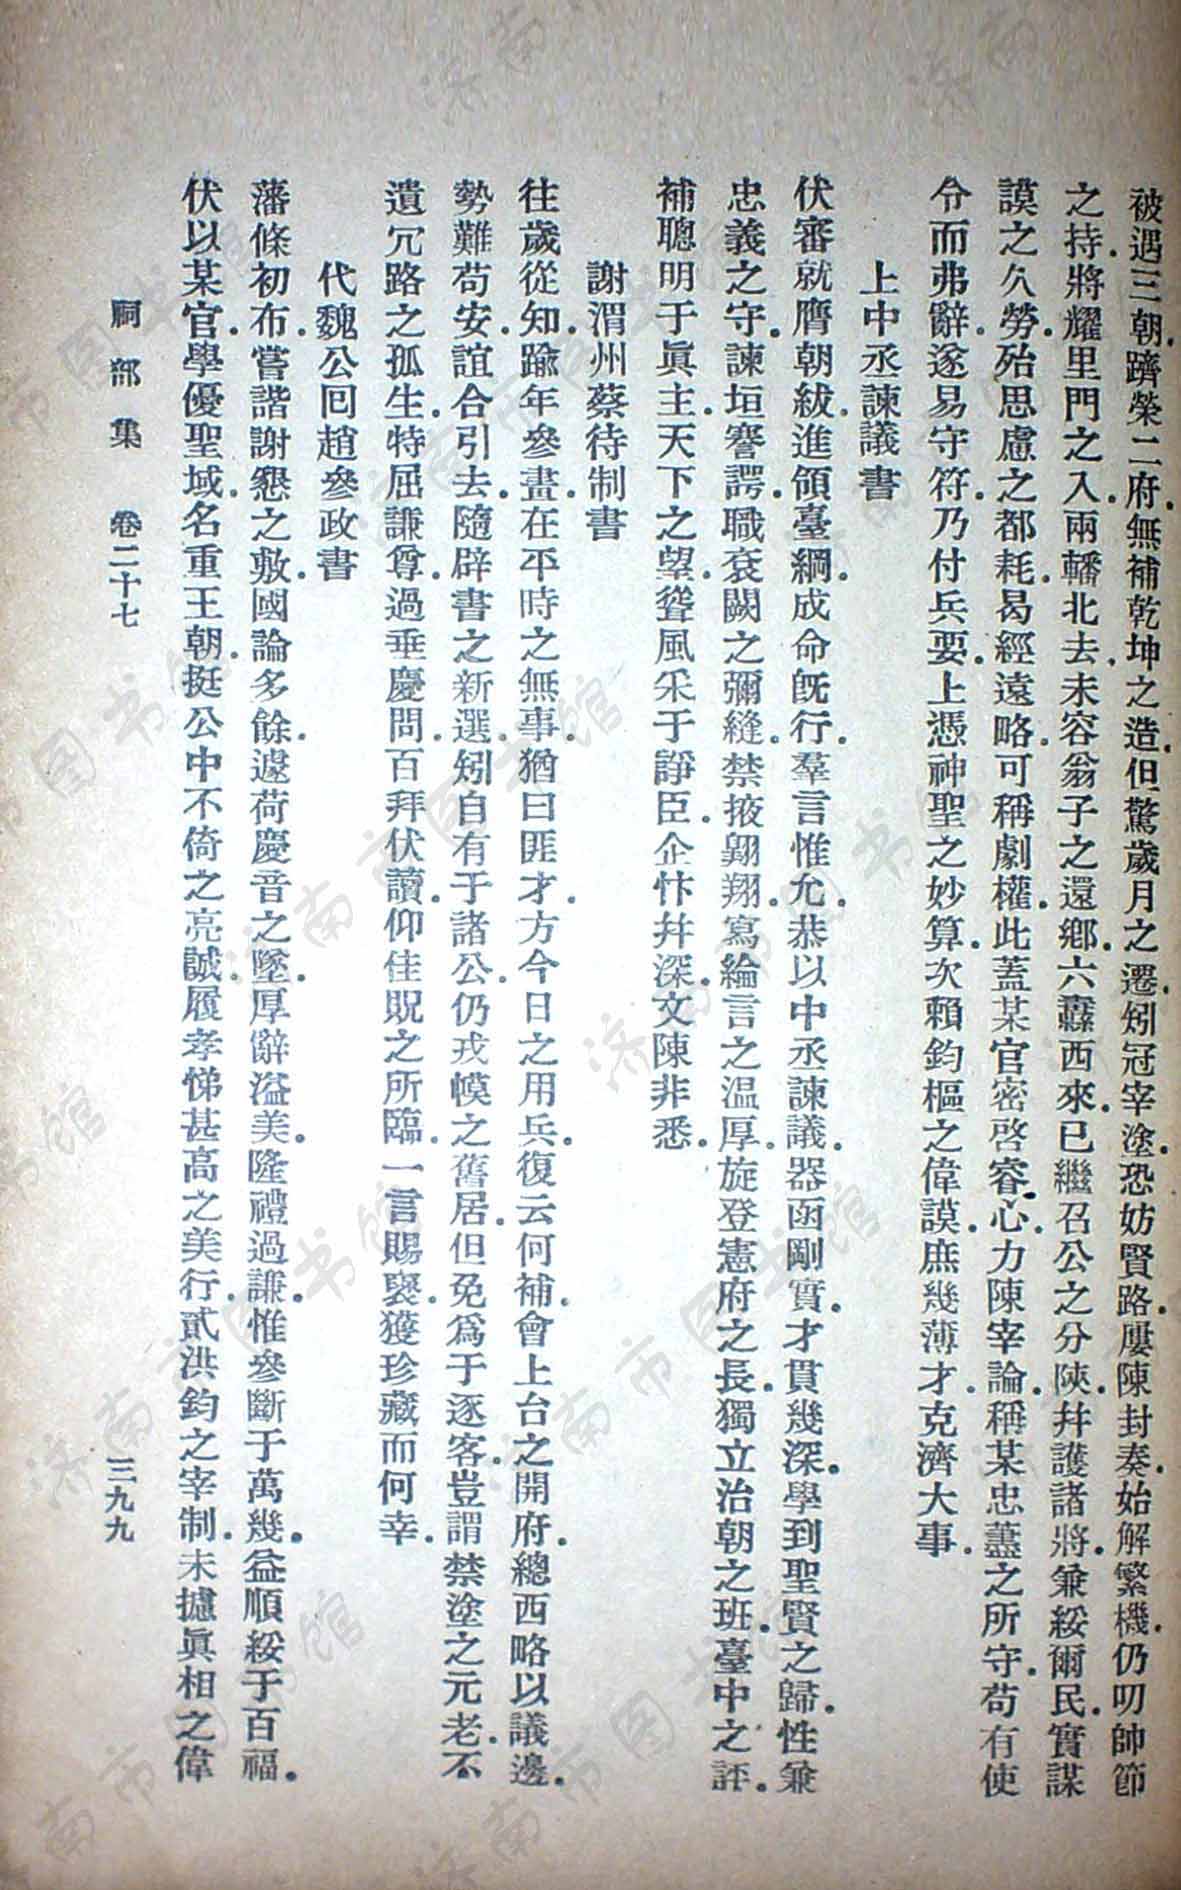 被遇三朝．躋榮二府．無補乾坤之造．但驚歲月之遷．矧冠宰塗．恐妨賢路．屢陳封奏．始解繁機．仍叨帥節
之持．將耀里門之入．兩轓北去．未容翁子之還鄉．六纛西來．已繼召公之分陝．幷護諸將．兼綏爾民．實謀
謨之久勞．殆思慮之都耗．曷經遠略．可稱劇權．此蓋某官密啓睿心．力陳宰論．稱某忠藎之所守．苟有使
令而弗辭．遂易守符．乃付兵要．上憑神聖之妙算．次賴鈞樞之偉謨．庶幾薄才．克濟大事．
上中丞諫議書
伏審就膺朝紱．進領臺綱．成命旣行．羣言惟允．恭以中丞諫議．器函剛實．才貫幾深．學到聖賢之歸．性兼
忠義之守．諫垣謇諤．職袞闕之彌縫．禁掖翺翔．寫綸言之溫厚．旋登憲府之長．獨立治朝之班．臺中之評．
補聰明于眞主．天下之望．聳風采于諍臣．企忭幷深．文陳非悉．
謝渭州蔡待制書
往歲從知．踰年參畫．在平時之無事．猶曰匪才．方今日之用兵．復云何補．會上台之開府．總西略以議邊．
勢難苟安．誼合引去．隨辟書之新選．矧自有于諸公．仍戎幙之舊居．但免爲于逐客．豈謂禁塗之元老．不
遺冗路之孤生．特屈謙尊．過垂慶問．百拜伏讀．仰佳貺之所臨．一言賜褒．獲珍藏而何幸．
代魏公回趙參政書
藩條初布．嘗諧謝懇之敷．國論多餘．遽荷慶音之墜．厚辭溢美．隆禮過謙．惟參斷于萬幾．益順綏于百福．
伏以某官學優聖域．名重王朝．挺公中不倚之亮誠．履孝悌甚高之美行．貳洪鈞之宰制．未攄眞相之偉
祠部集　卷二十七　三九九